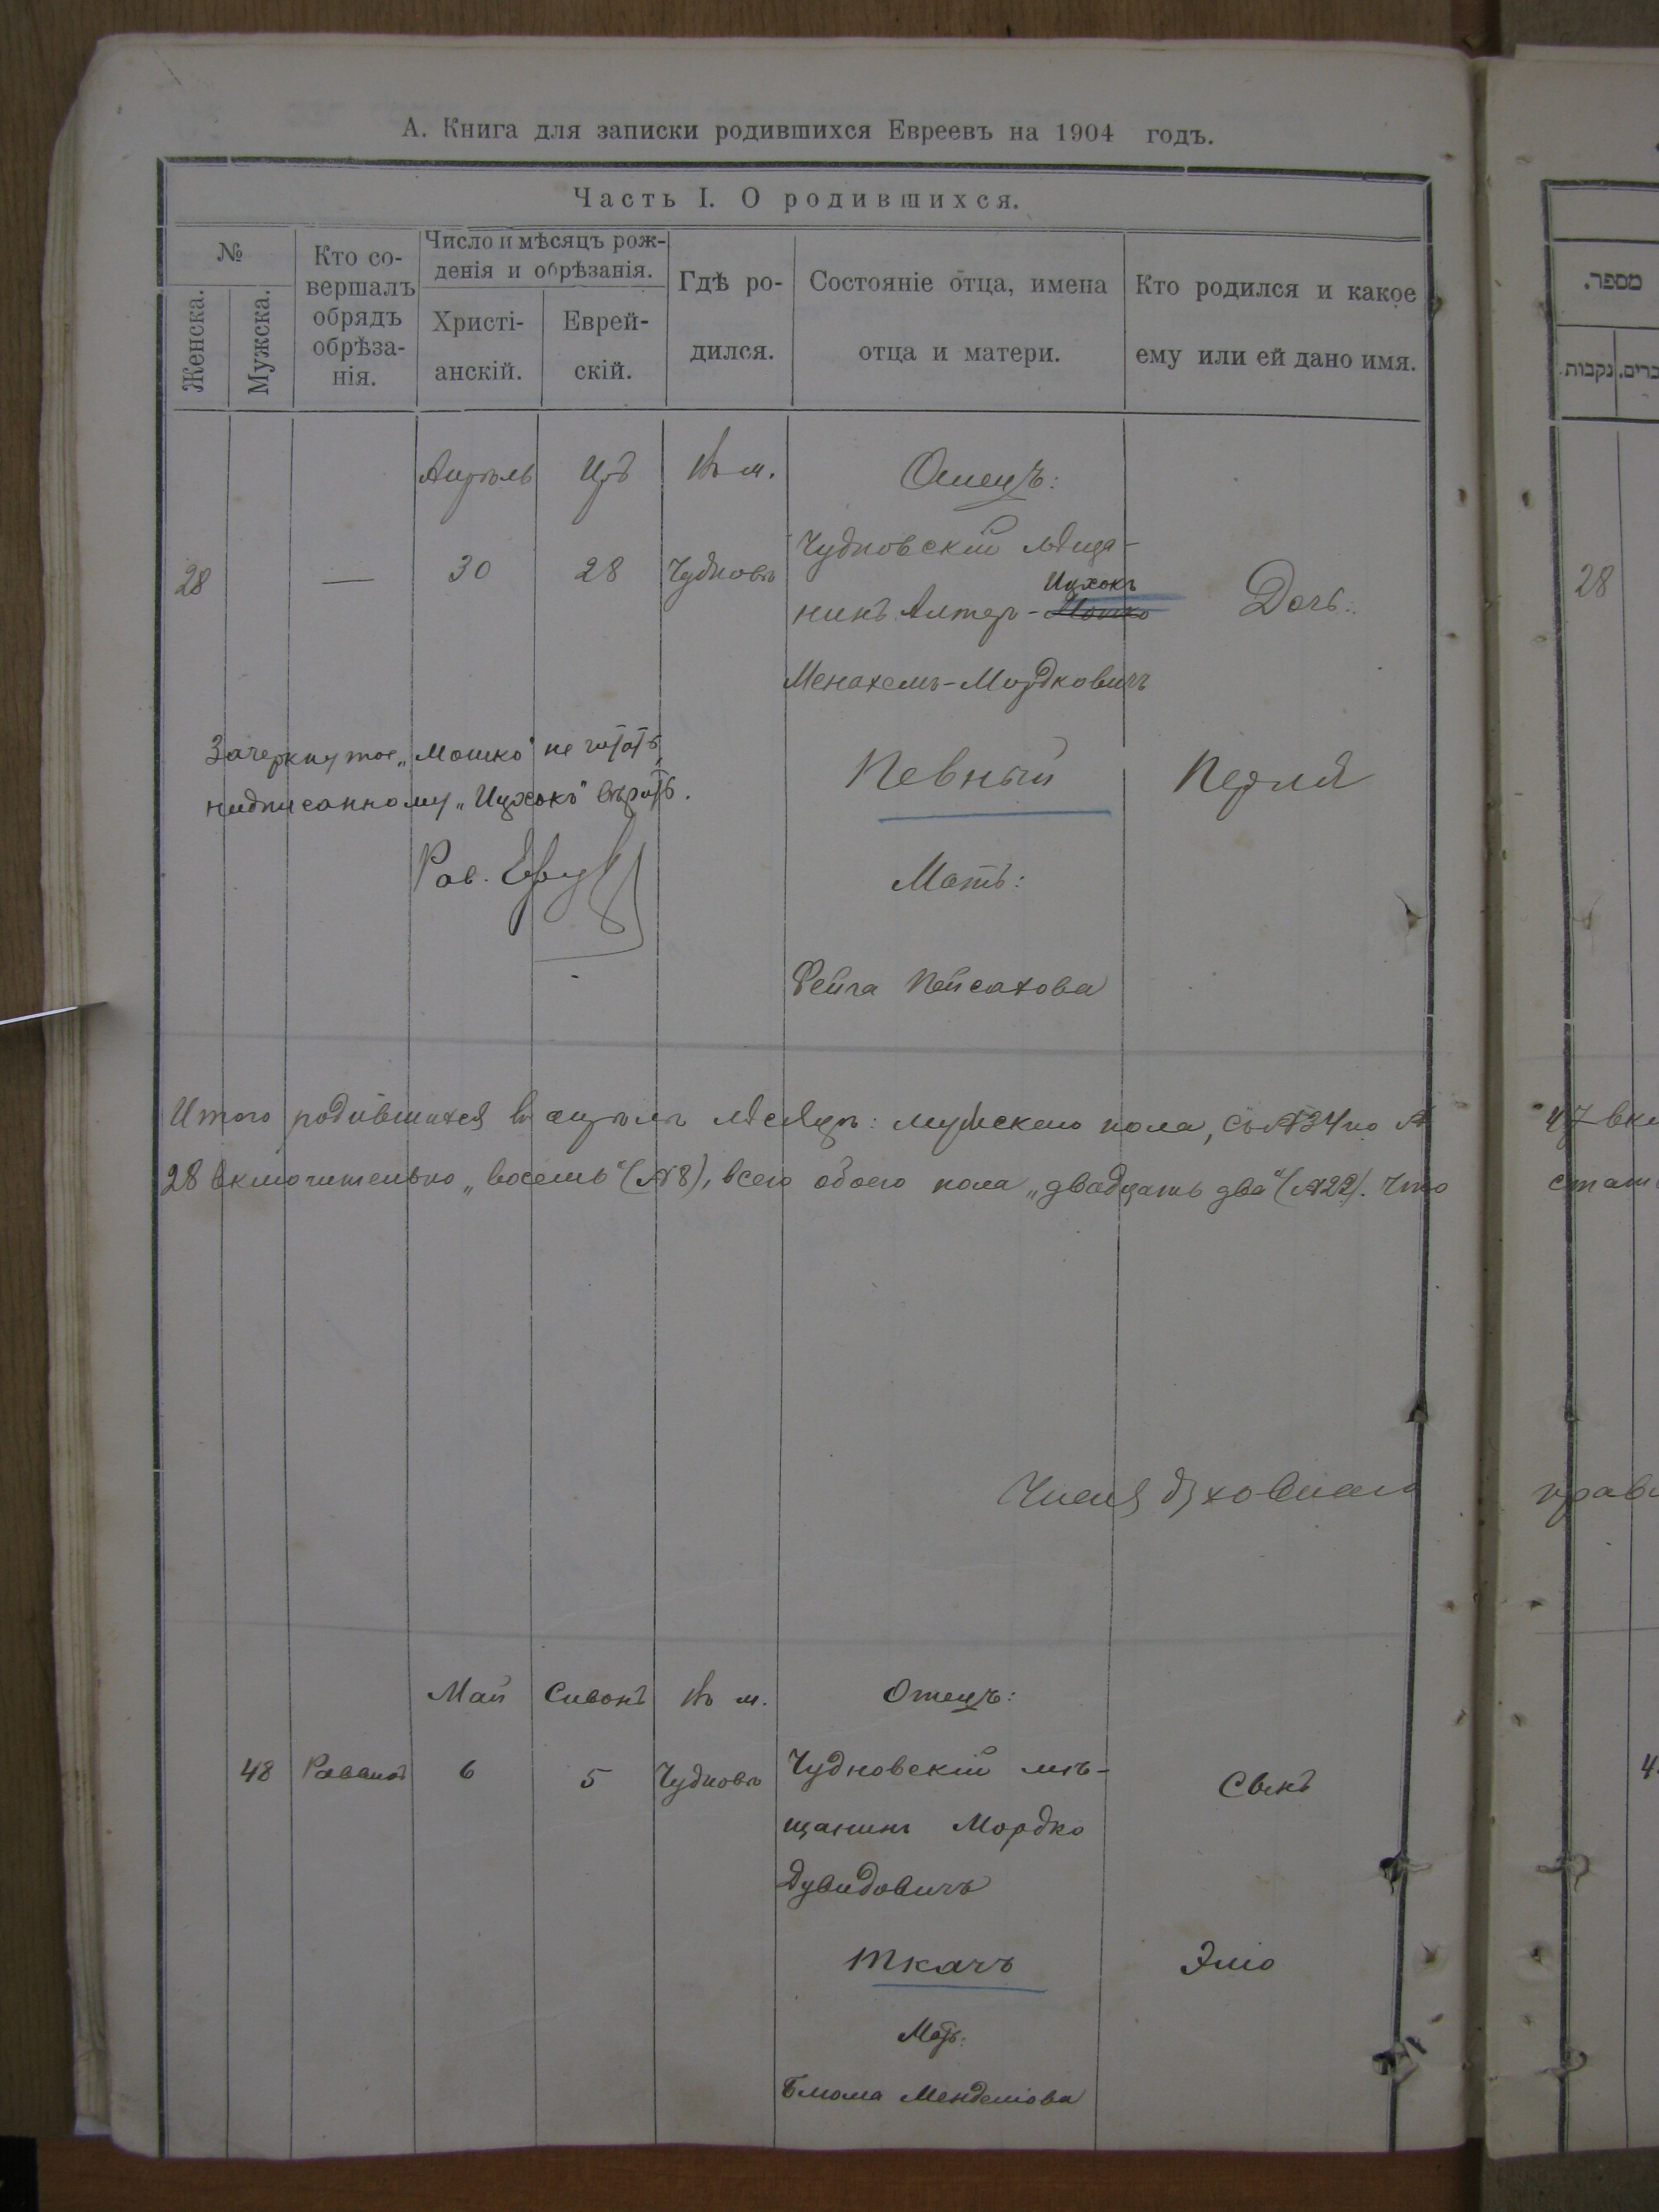 А. Книга для записки родившихся Евреевъ на 1904 годъ.
Часть I. О родившихся.
№
Женска.
Мужска.
Кто со-
вершалъ
обрядъ
обрѣза-
нія.
Число и мѣсяцъ рож-
денія и обрѣзанія.
Христі-
анскій.
Еврей-
скій.
Гдѣ ро-
дился.
Состояніе отца, имена
отца и матери.
Кто родился и какое
ему или ей дано имя.
מספר.
נקבות
Апрѣль Iръ Въ м. Отецъ:
Чудновскій мѣща-
28 — 30 28 Чудновѣ
Ицхокъ
нинъ Алтер-Мошко Дочь:
Менахемъ-Мордковичъ
Зачеркнутое „Мошко" не читать,
надписанному „Ицхокъ" вѣрить.
Певный Перля
Рав.
Мать:
Фейга Пейсахова
28
Итого родившихся въ апрѣлѣ мѣсяцѣ: мужского пола, съ №34 по №
28 включительно „восемь" (№8), всего обоего пола „двадцать два" (№22). Что
47 вкл
стат
Члены духовнаго
прав
Май Сивонъ Въ м. Отецъ:
48 Раввинъ 6 5 Чудновѣ Чудновскій мѣ- Сынъ
щанинъ Мордко
Дувидовичъ
Ткачъ Эліо
Мать:
Блюма Менделіова
4